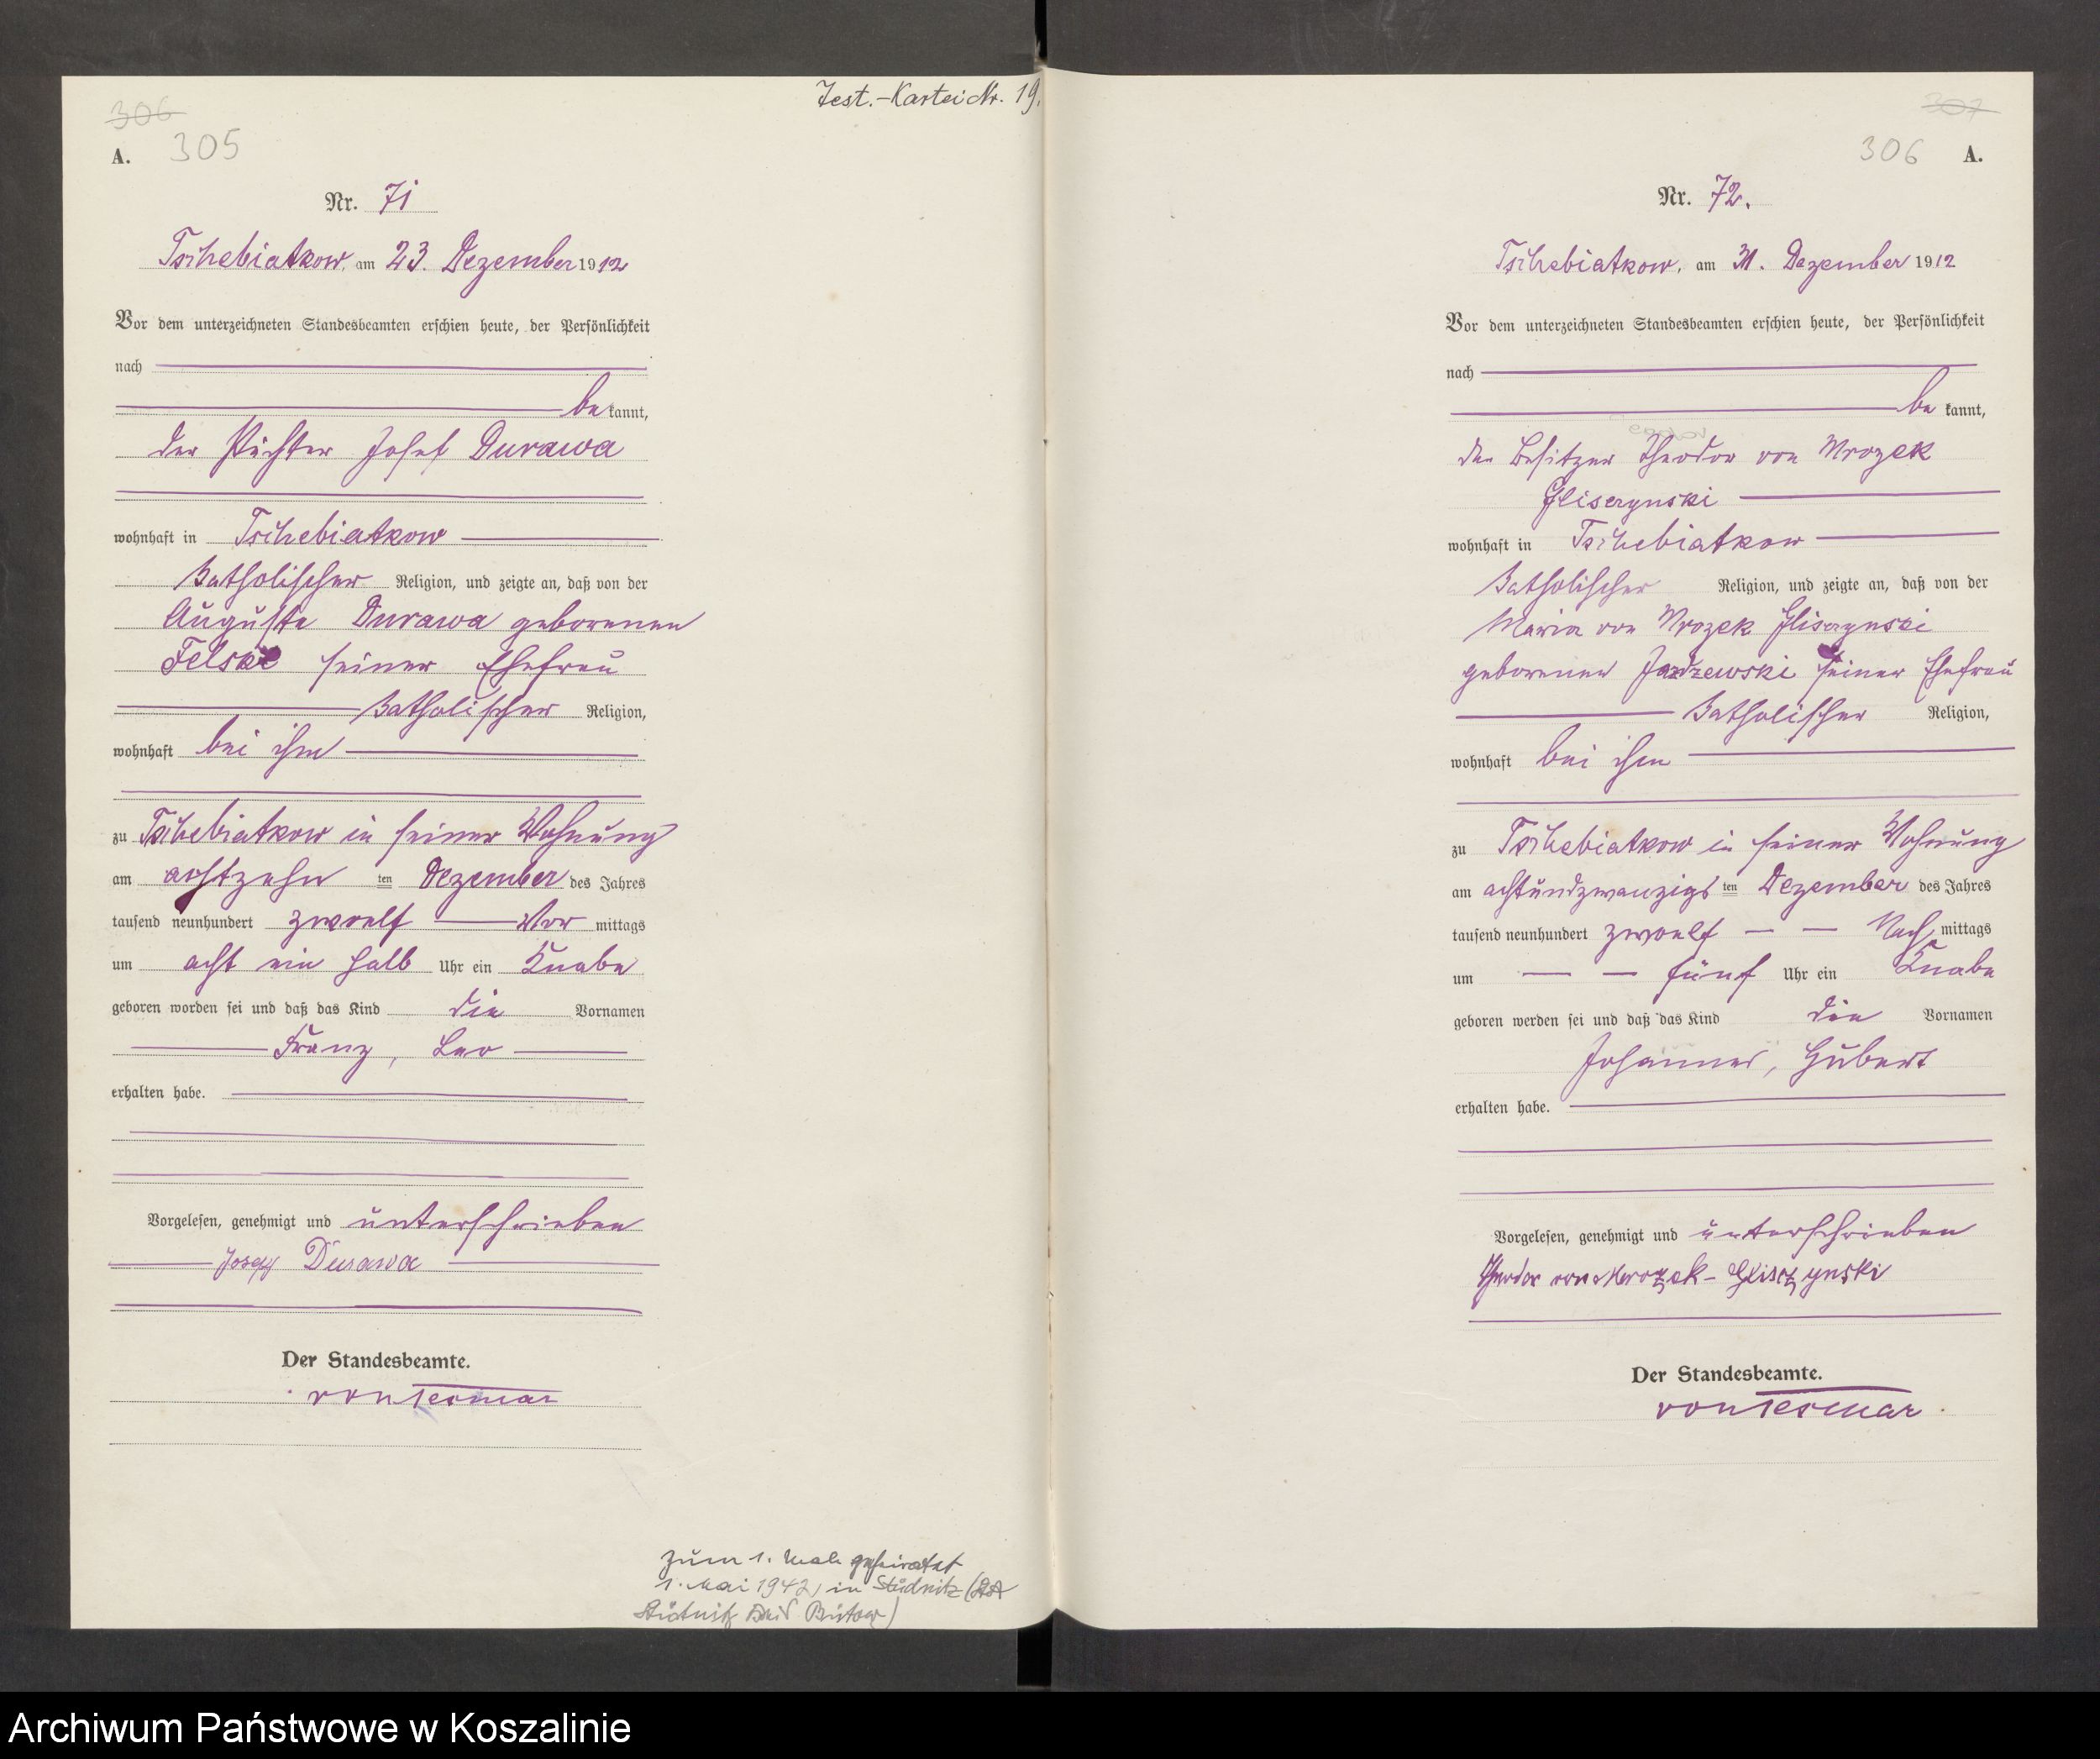 306
A. 305
Test.-Kartei Nr. 19.
Nr. 71
Tschebiatkow, am 23. Dezember 1912
Vor dem unterzeichneten Standesbeamten erschien heute, der Persönlichkeit
nach
bekannt,
der Pächter Josef Durawa
wohnhaft in Tschebiatkow
katholischer Religion, und zeigte an, daß von der
Auguste Durawa geborenen
Felske seiner Ehefrau
katholischer Religion,
wohnhaft bei ihm
zu Tschebiatkow in seiner Wohnung
am achtzehn ten Dezember des Jahres
tausend neunhundert zwoelf Vor mittags
um acht ein halb Uhr ein Knabe
geboren worden sei und daß das Kind die Vornamen
Franz, Leo
erhalten habe.
Vorgelesen, genehmigt und unterschrieben
Josef Durawa
Der Standesbeamte.
von Tesmar
zum 1. Male geheiratet
1. Mai 1942 in Stüdnitz (StA
Stüdnitz Bütow)
307
306 A.
Nr. 72.
Tschebiatkow, am 31. Dezember 1912
Vor dem unterzeichneten Standesbeamten erschien heute, der Persönlichkeit
nach
bekannt,
der Besitzer Theodor von Mrozek
Gliszynski
wohnhaft in Tschebiatkow
katholischer Religion, und zeigte an, daß von der
Maria von Mrozek Gliszynski
geborenen Jazdzewski seiner Ehefrau
katholischer Religion,
wohnhaft bei ihm
zu Tschebiatkow in seiner Wohnung
am achtundzwanzigs ten Dezember des Jahres
tausend neunhundert zwoelf Nach mittags
um fünf Uhr ein Knabe
geboren werden sei und daß das Kind die Vornamen
Johannes, Hubert
erhalten habe.
Vorgelesen, genehmigt und unterschrieben
Theodor von Mrozek-Gliszynski
Der Standesbeamte.
von Tesmar.
Archiwum Państwowe w Koszalinie